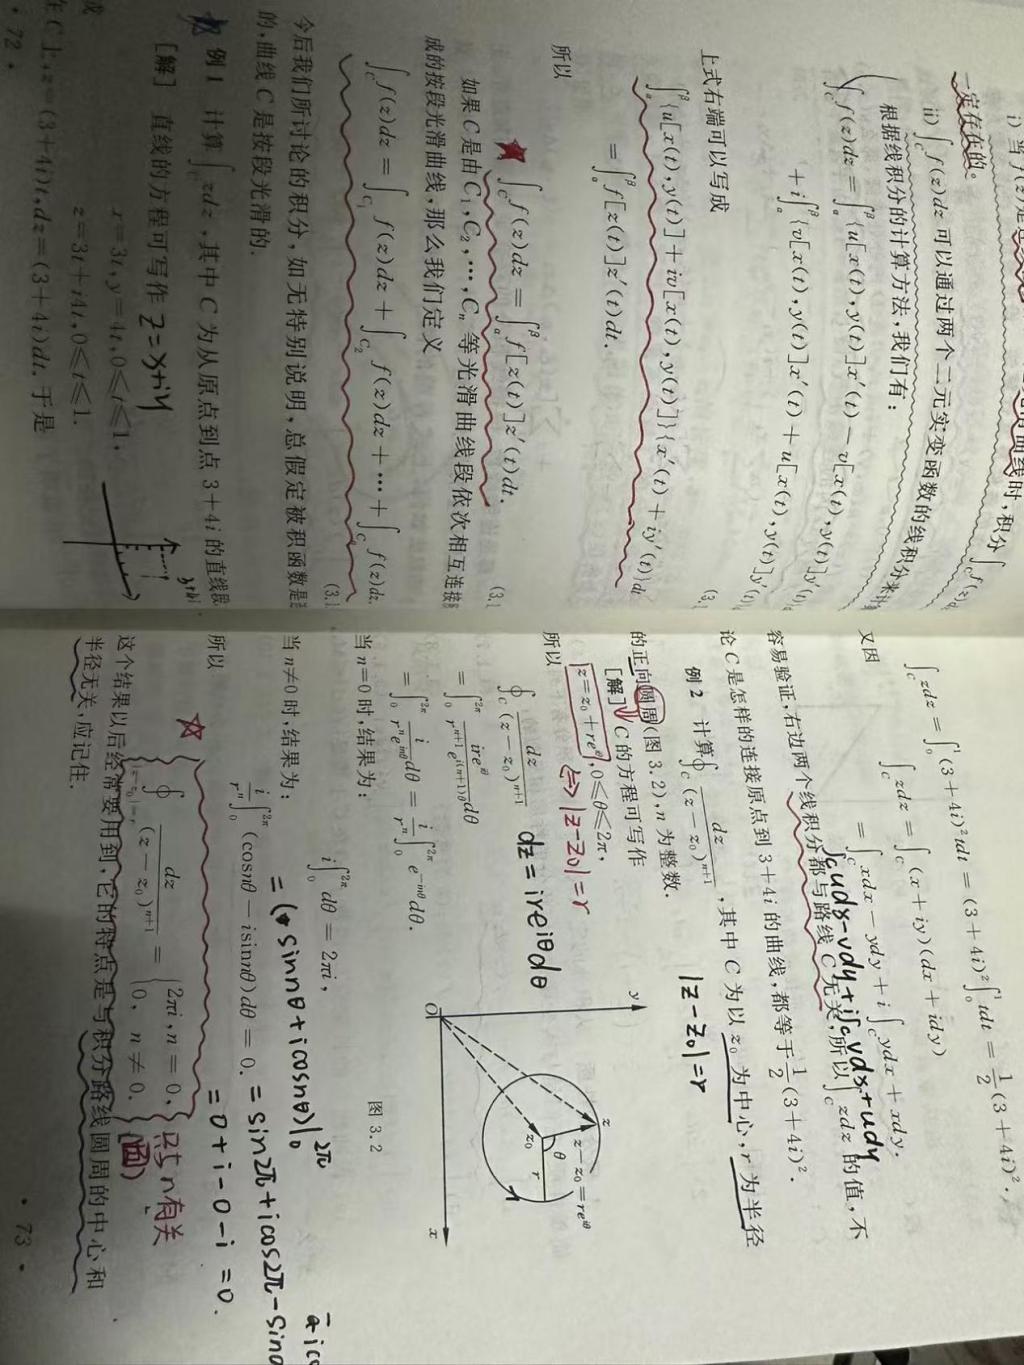 i) 当f(z)是
曲线时,积分∫_C f(z)
一定存在的。
ii) ∫_C f(z)dz 可以通过两个二元实变函数的线积分来
根据线积分的计算方法,我们有:
∫_C f(z)dz = ∫_α^β {u[x(t),y(t)]x′(t) − v[x(t),y(t)]y′(t)
+ i∫_α^β {v[x(t),y(t)]x′(t) + u[x(t),y(t)]y′(t)
(3.1
上式右端可以写成
∫_α^β {u[x(t),y(t)] + iv[x(t),y(t)]}{x′(t) + iy′(t)}d
= ∫_α^β f[z(t)]z′(t)dt.
所以
∫_C f(z)dz = ∫_α^β f[z(t)]z′(t)dt.
(3.1
如果C是由C₁,C₂,…,Cₙ等光滑曲线段依次相互连接
成的按段光滑曲线,那么我们定义
∫_C f(z)dz = ∫_{C₁} f(z)dz + ∫_{C₂} f(z)dz + … + ∫_{Cₙ} f(z)dz.
(3.1
今后我们所讨论的积分,如无特别说明,总假定被积函数是
的,曲线C是按段光滑的.
例1 计算∫_C zdz,其中C为从原点到点3+4i的直线段
[解] 直线的方程可写作 z=x+iy
x=3t,y=4t,0≤t≤1,
或
z=3t+i4t,0≤t≤1.
在C上,z=(3+4i)t,dz=(3+4i)dt.于是
· 72 ·
∫_C zdz = ∫_0^1 (3+4i)²tdt = (3+4i)²∫_0^1 tdt = 1/2 (3+4i)².
又因
∫_C zdz = ∫_C (x+iy)(dx+idy)
= ∫_C xdx − ydy + i∫_C ydx + xdy.
∫_C udx−vdy+i∫_C vdx+udy
容易验证,右边两个线积分都与路线C无关,所以∫_C zdz的值,不
论C是怎样的连接原点到3+4i的曲线,都等于1/2 (3+4i)².
例2 计算∮_C dz/(z−z₀)^{n+1},其中C为以z₀为中心,r为半径
|z−z₀|=r
的正向圆周(图3.2),n为整数.
[解] C的方程可写作
z=z₀+re^{iθ},0≤θ≤2π,
⇔|z−z₀|=r
所以
dz=ire^{iθ}dθ
∮_C dz/(z−z₀)^{n+1}
= ∫_0^{2π} ire^{iθ}/(r^{n+1}e^{i(n+1)θ}) dθ
= ∫_0^{2π} i/(rⁿe^{inθ}) dθ = i/rⁿ ∫_0^{2π} e^{−inθ}dθ.
y
O
x
z
z₀
θ
r
z−z₀=re^{iθ}
图3.2
当n=0时,结果为:
i∫_0^{2π} dθ = 2πi,
当n≠0时,结果为:
=(sinnθ+icosnθ)|_0^{2π}
i/rⁿ ∫_0^{2π} (cosnθ − isinnθ)dθ = 0. =sin2π+icos2π−sin0
=0+i−0−i=0.
所以
∮_{|z−z₀|=r} dz/(z−z₀)^{n+1} = {2πi, n=0, 0, n≠0.
只与n有关
(圆)
这个结果以后经常要用到,它的特点是与积分路线圆周的中心和
半径无关,应记住.
· 73 ·